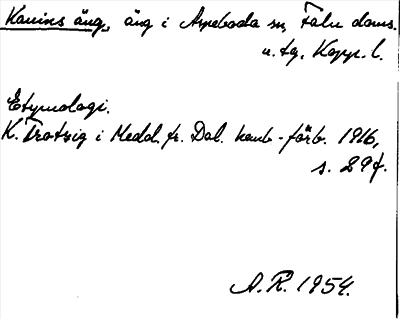 Kanins äng, äng i Aspeboda sn, Falu doms.
u. tg. Kopp. l.
Etymologi.
K. Trotzig i Medd. fr. Dal. hemb-förb. 1916,
s. 29 f.
A.R. 1954.